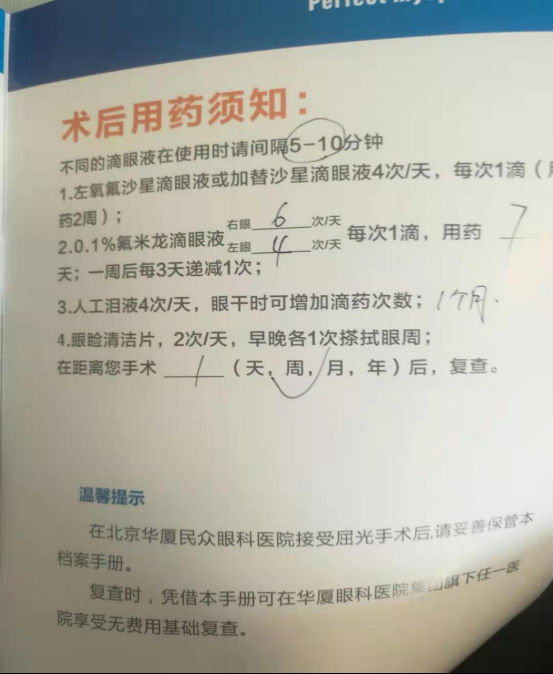 术后用药须知：
不同的滴眼液在使用时请间隔5-10分钟
1.左氧氟沙星滴眼液或加替沙星滴眼液4次/天，每次1滴（
药2周）；
2.0.1%氟米龙滴眼液 右眼 6 次/天 左眼 4 次/天 每次1滴，用药 7
天；一周后每3天递减1次；
3.人工泪液4次/天，眼干时可增加滴药次数；1个月.
4.眼睑清洁片，2次/天，早晚各1次搽拭眼周；
在距离您手术 1 （天，周，月，年）后，复查。
温馨提示
在北京华厦民众眼科医院接受屈光手术后,请妥善保管本
档案手册。
复查时，凭借本手册可在华厦眼科医院集团旗下任一医
院享受无费用基础复查。